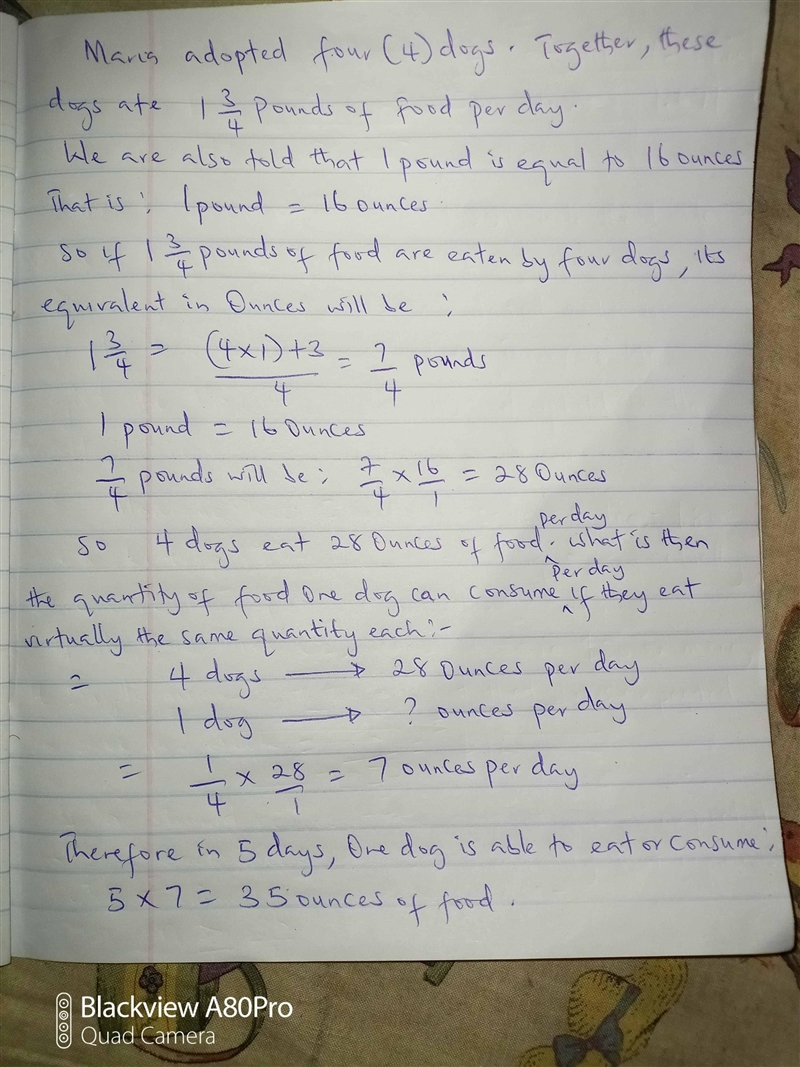 Maria adopted four (4) dogs. Together, these
dogs ate 1 3/4 Pounds of food per day.
We are also told that 1 pound is equal to 16 ounces
That is; 1 pound = 16 ounces.
So if 1 3/4 pounds of food are eaten by four dogs, its
equivalent in Ounces will be ;
1 3/4 = ((4×1)+3)/4 = 7/4 pounds
1 pound = 16 Ounces
7/4 pounds will be; 7/4 × 16/1 = 28 Ounces
So 4 dogs eat 28 Ounces of food per day. What is then
the quantity of food One dog can consume per day if they eat
virtually the same quantity each:-
= 4 dogs → 28 Ounces per day
1 dog → ? ounces per day
= 1/4 × 28/1 = 7 ounces per day
Therefore in 5 days, One dog is able to eat or consume;
5 × 7 = 35 ounces of food.
Blackview A80Pro
Quad Camera